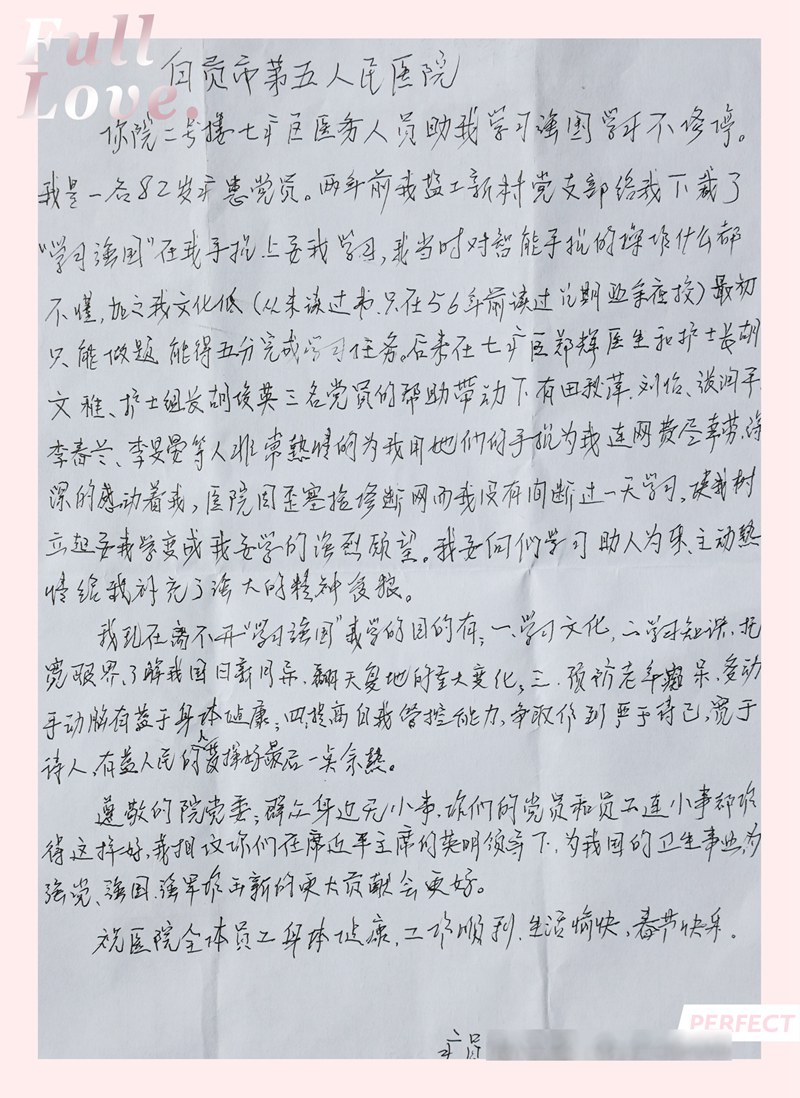 Full
Love.
自贡市第五人民医院
你院二号楼七疒区医务人员助我学习强国学习不修停。
我是一名82岁疒患党员。两年前我盐工新村党支部给我下载了
"学习强国"在我手机上要我学习,我当时对智能手机的操作什么都
不懂,加之我文化低(从未读过书.只在56年前读过 期业余夜校)最初
只能做题 能得五分完成学习任务。后来在七疒区郑辉医生和护士长胡
文雅、护士组长胡俊英三名党员的帮助带动下有田秋萍.刘怡、
李春兰、李旻曼等人非常热情的为我用她们的手机为我连网费尽辛劳.深
深的感动着我,医院因 检修断网而我没有间断过一天学习,使我树
立起要我学变成我要学的强烈愿望。我要向们学习助人为乐、主动热
情给我补充了强大的精神食粮。
我现在离不开"学习强国"我学的目的有;一.学习文化,二.学习知识.拓
宽眼界、了解我国日新月异.翻天复地的重大变化;三.预防老年痴呆.多动
手动脑有益于身体健康;四.提高自我管控能力,争取作到严于待己,宽于
待人、有益人民的人发挥好最后一点余热。
遵敬的院党委;群众身边无小事.你们的党员和员工连小事都作
得这样好,我相议你们在席近平主席的英明领导下,为我国的卫生事业,为
强党、强国.强军作出新的更大贡献会更好。
祝医院全体员工身体健康.工作顺利.生活愉快,春节快乐。
疒员
PERFECT